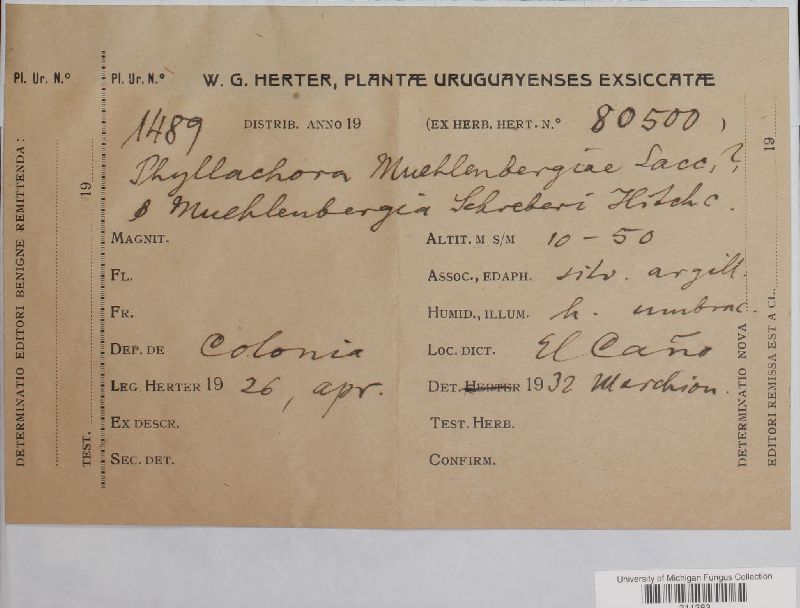 Pl. Ur. N.º
Pl. Ur. N.º W. G. HERTER, PLANTÆ URUGUAYENSES EXSICCATÆ
1489 DISTRIB. ANNO 19 (EX HERB. HERT. N.º 80500 )
Phyllachora Muehlenbergiae Sacc.?
Muehlenbergia Schreberi Hitchc.
MAGNIT. ALTIT. M S/M 10-50
FL. ASSOC., EDAPH. silv. argill.
FR. HUMID., ILLUM. h. umbrac.
DEP. DE Colonia LOC. DICT. El Caño
LEG. HERTER 19 26, apr. DET. HERTER 1932 Marchion.
EX DESCR. TEST. HERB.
SEC. DET. CONFIRM.
DETERMINATIO EDITORI BENIGNE REMITTENDA:
TEST. 19
DETERMINATIO NOVA
EDITORI REMISSA EST A CL. 19
University of Michigan Fungus Collection